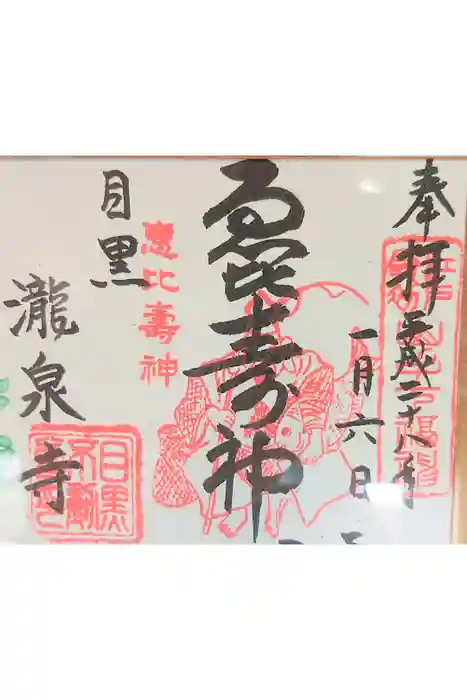 奉拝
平成二十八年
一月六日
ゑ比寿神
恵比壽神
目黒
瀧泉寺
目黒